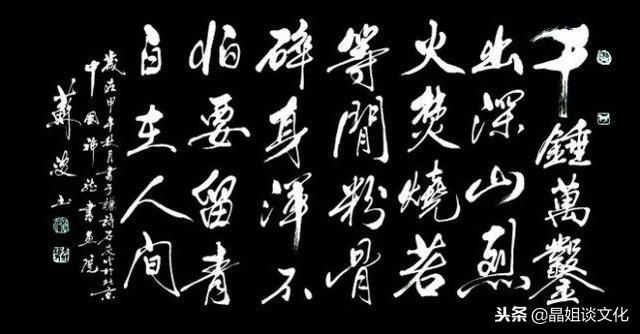 千錘萬鑿
出深山烈
火焚燒若
等閒粉骨
碎身渾不
怕要留青
白在人间
歲在甲午秋月書于謙詩石灰吟於北京
中國書画院
蘇波书
头条 @晶姐谈文化